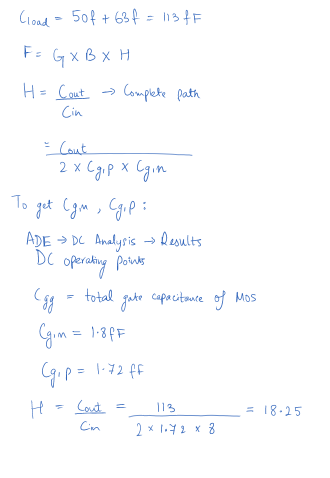 Cload = 50f + 63f = 113 fF
F = G x B x H
H = Cout / Cin → Complete path
= Cout / 2 x Cg,p x Cg,n
To get Cg,n , Cg,p :
ADE → DC Analysis → Results
DC operating points
Cgg = total gate capacitance of MOS
Cg,n = 1.8fF
Cg,p = 1.72 fF
H = Cout / Cin = 113 / 2 x 1.72 x 8 = 18.25